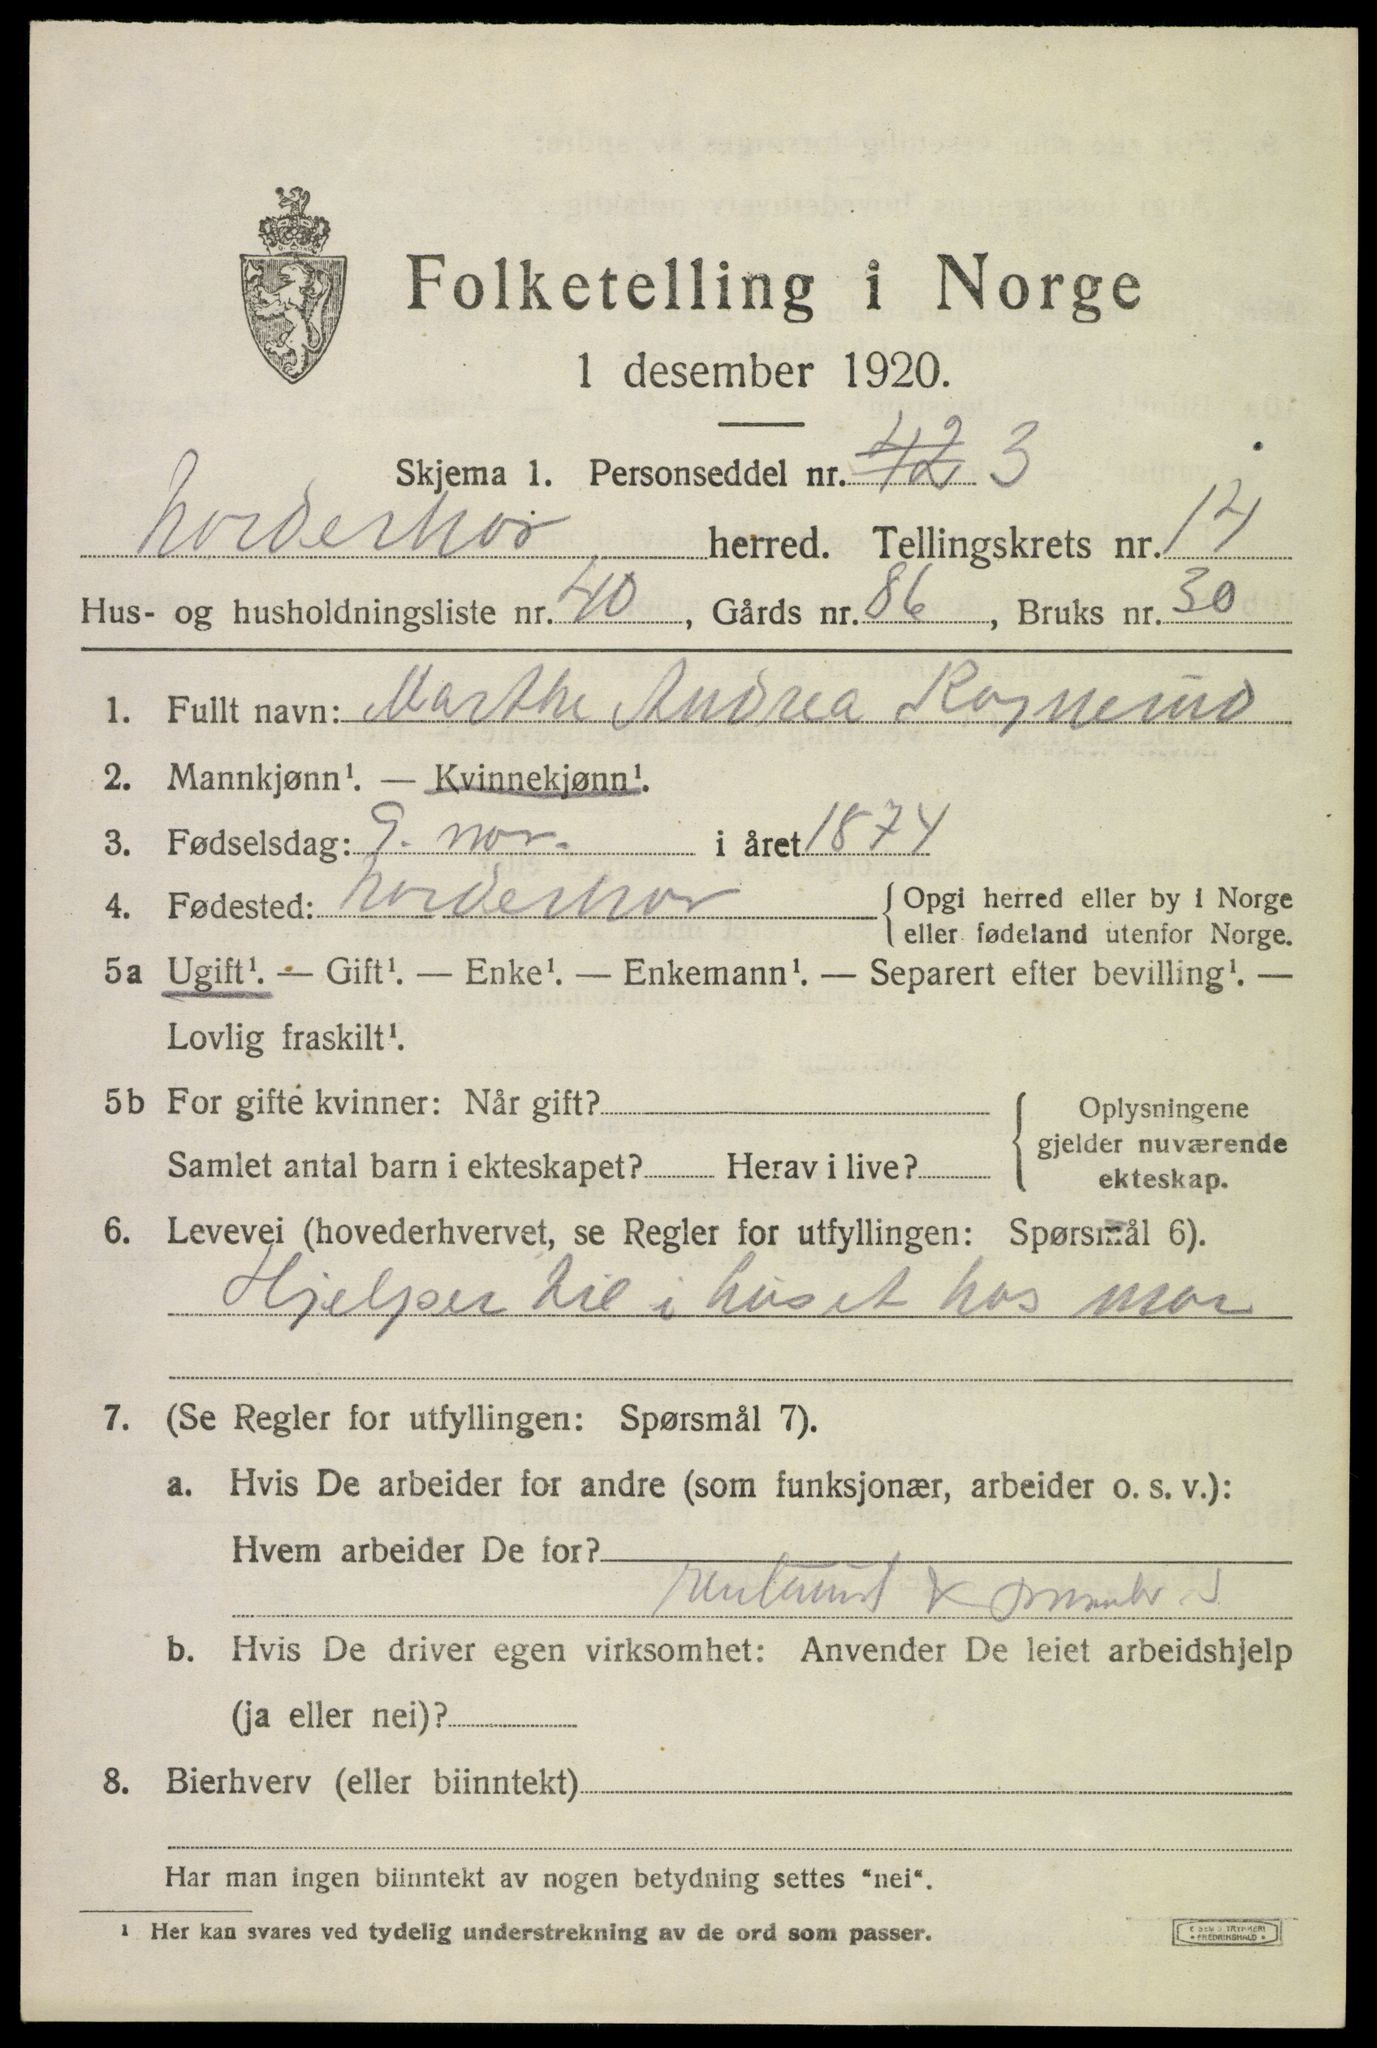 Folketelling i Norge
1 desember 1920.
Skjema 1. Personseddel nr. 42 3
Norderhov herred. Tellingskrets nr. 14
Hus- og husholdningsliste nr. 40, Gårds nr. 86, Bruks nr. 30
1. Fullt navn: Marthe Andrea Rognerud
2. Mannkjønn¹. — Kvinnekjønn¹.
3. Fødselsdag: 9. nov. i året 1874
4. Fødested: Norderhov { Opgi herred eller by i Norge
eller fødeland utenfor Norge.
5a Ugift¹. — Gift¹. — Enke¹. — Enkemann¹. — Separert efter bevilling¹. —
Lovlig fraskilt¹.
5b For gifte kvinner: Når gift?
Samlet antal barn i ekteskapet? Herav i live?
{ Oplysningene
gjelder nuværende
ekteskap.
6. Levevei (hovederhvervet, se Regler for utfyllingen: Spørsmål 6).
Hjelper til i huset hos mor
7. (Se Regler for utfyllingen: Spørsmål 7).
a. Hvis De arbeider for andre (som funksjonær, arbeider o. s. v.):
Hvem arbeider De for?
b. Hvis De driver egen virksomhet: Anvender De leiet arbeidshjelp
(ja eller nei)?
8. Bierhverv (eller biinntekt)
Har man ingen biinntekt av nogen betydning settes "nei".
¹ Her kan svares ved tydelig understrekning av de ord som passer.
E SEM'S TRYKKERI
FREDRIKSHALD